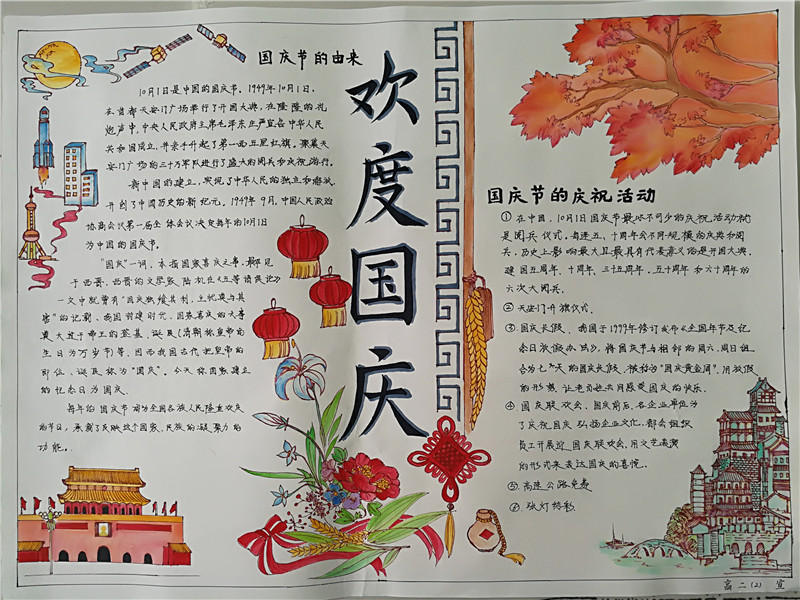 国庆节的由来
10月1日是中国的国庆节。1949年10月1日，
在首都天安门广场举行了开国大典，在隆隆的礼
炮声中，中央人民政府主席毛泽东庄严宣告中华人民
共和国成立，并亲手升起了第一面五星红旗。聚集天
安门广场的三十万军队进行了盛大的阅兵和庆祝游行。
新中国的建立，实现了中华人民的独立和解放，
开创了中国历史的新纪元。1949年9月，中国人民政治
协商会议第一届全体会议决定每年的10月1日
为中国的国庆节。
“国庆”一词，本指国家喜庆之事，最早见
于西晋。西晋的文学家陆机在《五等诸侯论》
一文中就曾有“国庆独飨其利，主忧莫与其
害”的记载。我国封建时代，国家喜庆的大事
莫大过于帝王的登基、诞辰（清朝称皇帝的
生日为万岁节）等，因而我国古代把皇帝的
即位、诞辰称为“国庆”。今天称国家建立
的纪念日为国庆。
每年的国庆节成为全国各族人民隆重欢庆
的节日，承载了反映这个国家、民族的凝聚力的
功能。
欢度国庆
国庆节的庆祝活动
①在中国，10月1日国庆节最必不可少的庆祝活动就
是阅兵仪式。每逢五、十周年会不同规模的庆典和阅
兵，历史上影响最大且最具有代表意义的是开国大典、
建国五周年、十周年、三十五周年、五十周年和六十周年的
六次大阅兵。
②天安门升旗仪式。
③国庆长假，我国于1999年修订发布《全国年节及纪
念日放假办法》，将国庆节与相邻的周六、周日组
合为七天的国庆长假，被称为“国庆黄金周”，用放假
的形式让老百姓共同感受国庆的快乐。
④国庆联欢会，国庆前后，各企业单位为
了庆祝国庆弘扬企业文化，都会组织
员工开展迎国庆联欢会，用文艺表演
的形式来表达国庆的喜悦。
⑤高速公路免费
⑥张灯结彩。
高二(2) 宣